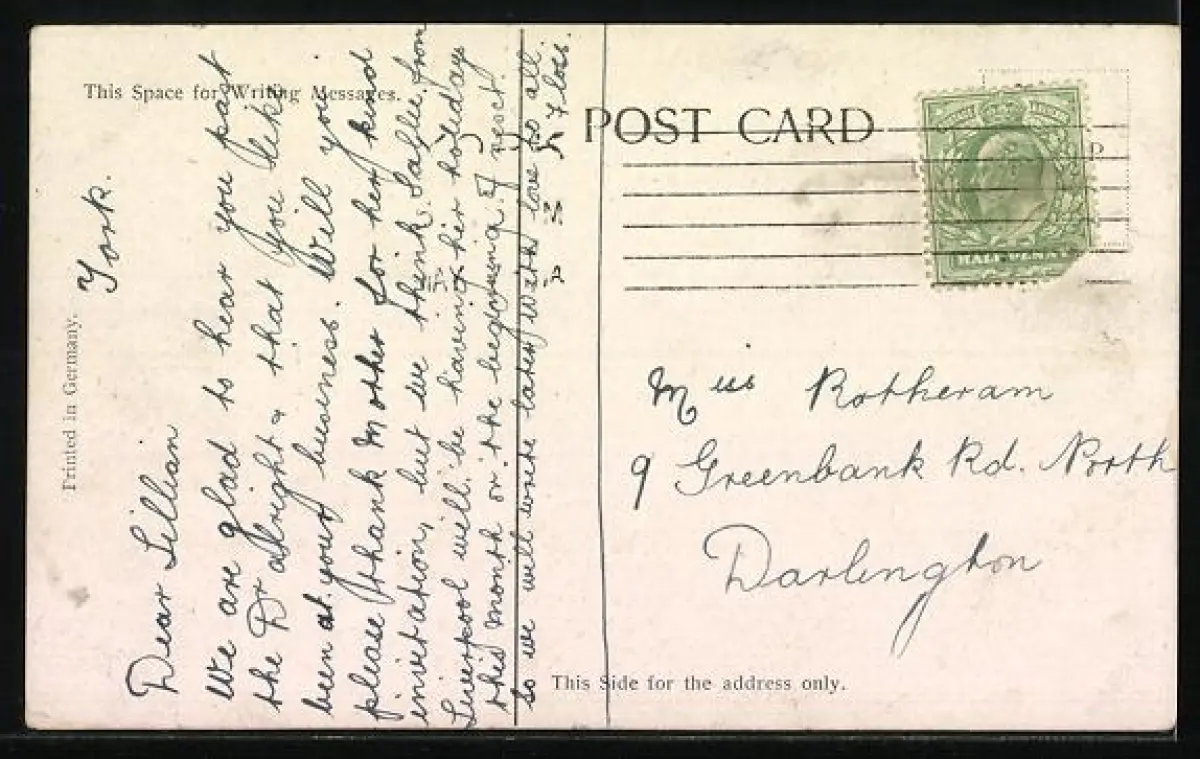 This Space for Writing Messages.
York.
Dear Lillian
We are glad to hear you past
the Dr alright & that you like
been at your business. Will you
please thank Mother for her kind
invetation, but we think Sallie from
Liverpool will be having her holidays
this month or the begouning of next
so we will write later, With love to all
Floss.
Printed in Germany.
POST CARD
HALFPENNY
Miss Rotheram
9 Greenbank Rd. North
Darlington
This Side for the address only.